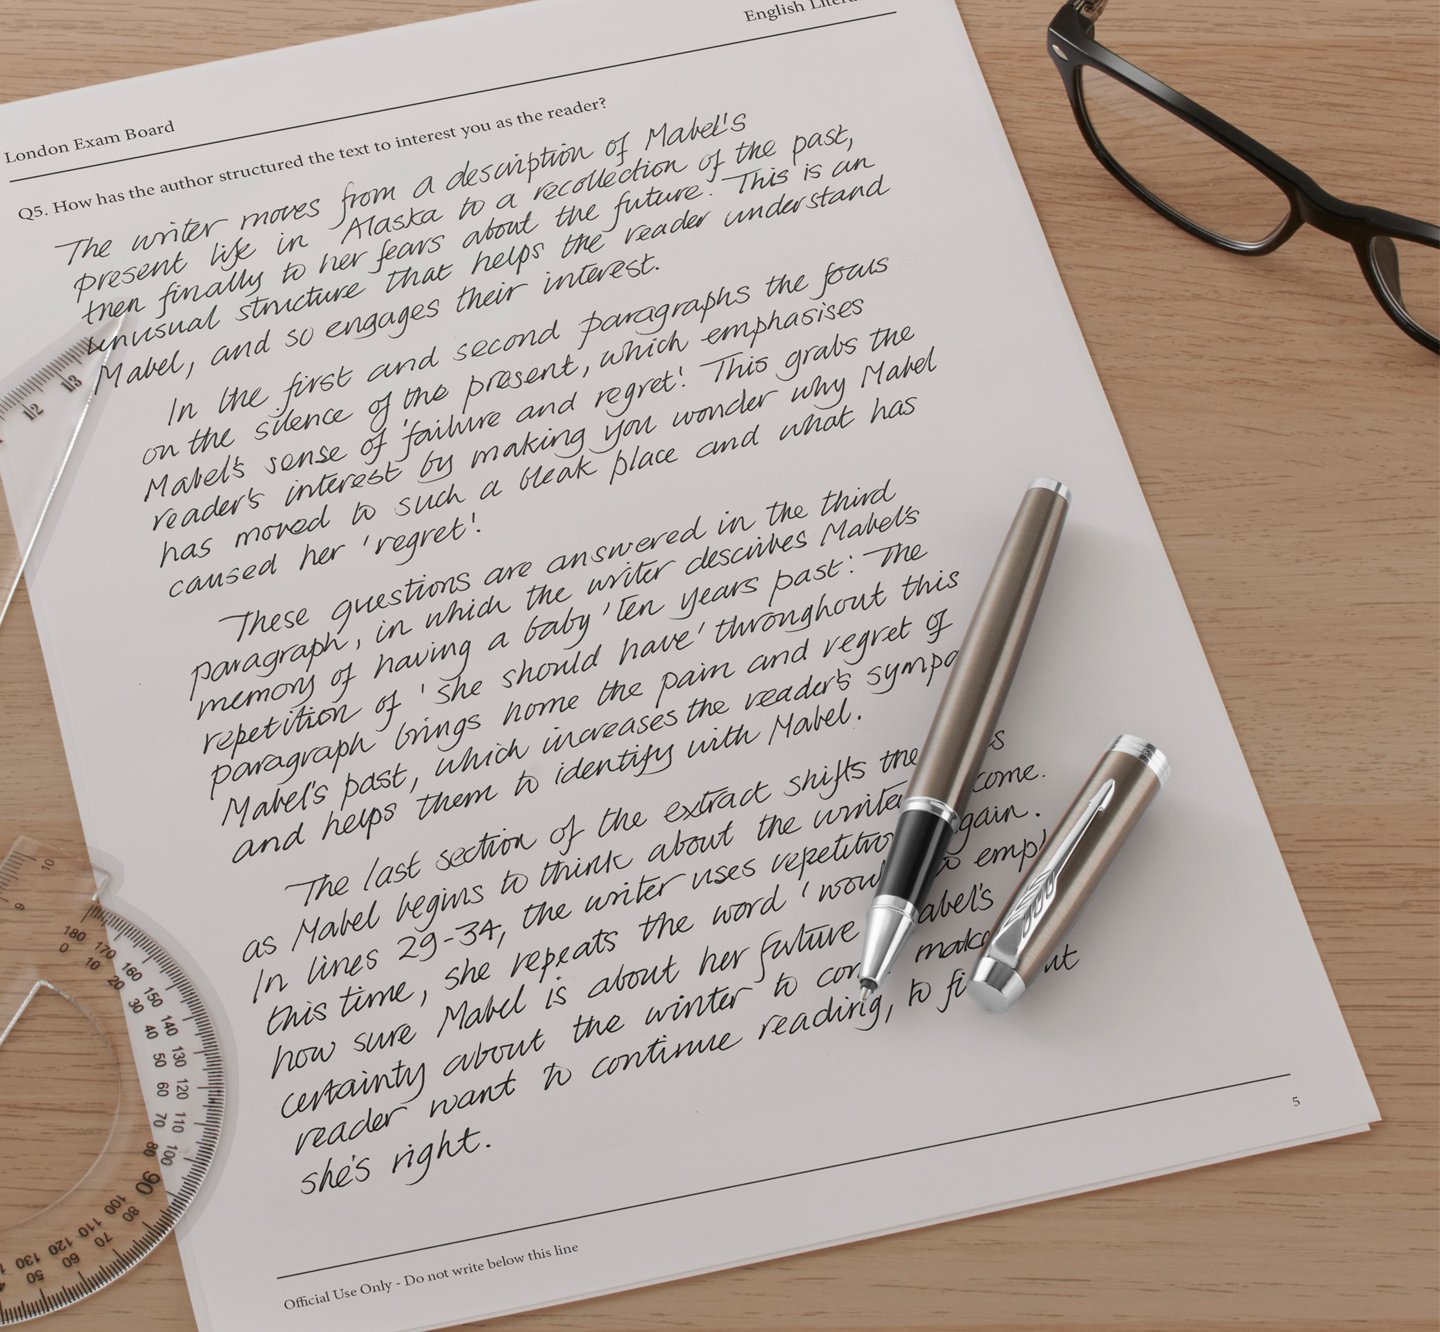 London Exam Board
English
Q5. How has the author structured the text to interest you as the reader?
The writer moves from a description of Mabel's
present life in Alaska to a recollection of the past,
then finally to her fears about the future. This is an
unusual structure that helps the reader understand
Mabel, and so engages their interest.
In the first and second paragraphs the focus
on the silence of the present, which emphasises
Mabel's sense of 'failure and regret'. This grabs the
reader's interest by making you wonder why Mabel
has moved to such a bleak place and what has
caused her 'regret'.
These questions are answered in the third
paragraph, in which the writer describes Mabel's
memory of having a baby 'ten years past'. The
repetition of 'she should have' throughout this
paragraph brings home the pain and regret of
Mabel's past, which increases the reader's
and helps them to identify with Mabel.
The last section of the extract shifts the
as Mabel begins to think about the come.
In lines 29-34, the writer uses repetition again.
this time, she repeats the word 'would' to
how sure Mabel is about her future Mabel's
certainty about the winter to come makes
reader want to continue reading, to out
she's right.
5
Official Use Only - Do not write below this line
12
13
10
9
180 170 160 150 140 130 120 110 100 90 80 70 60 50
0 10 20 30 40 50 60 70 80 90 100 110 120 130